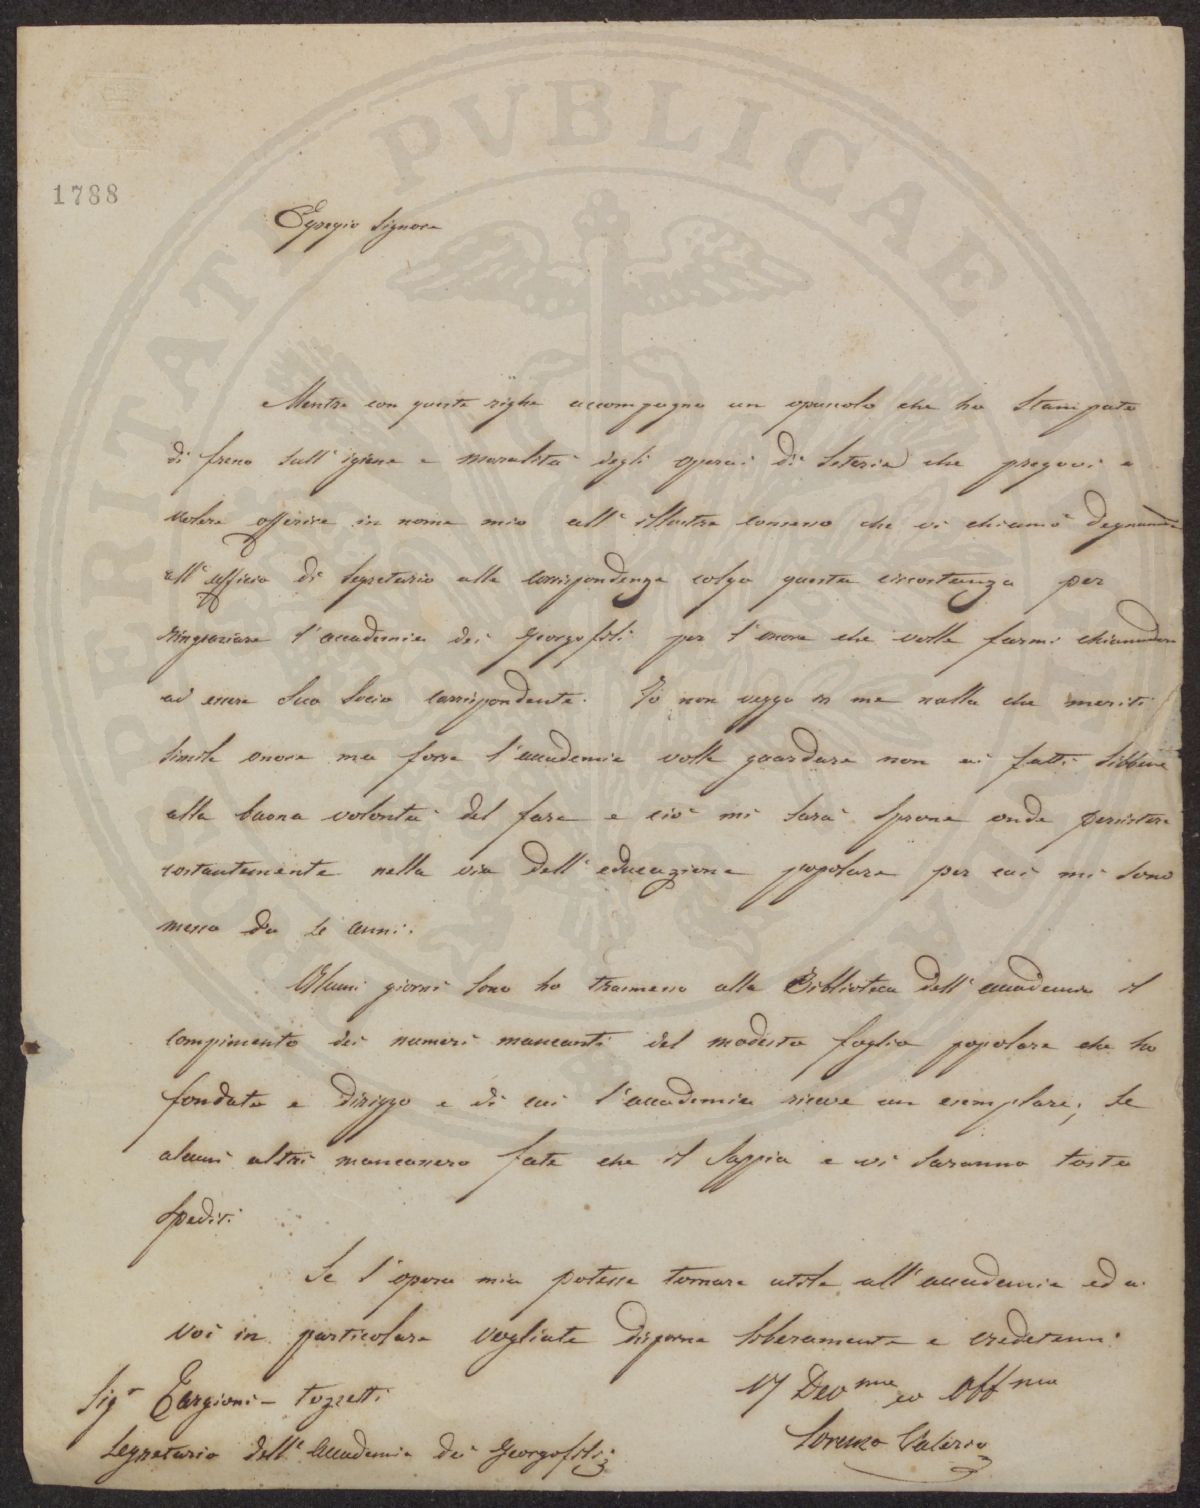 PROSPERITATI PVBLICAE
1788
Egregio Signore
Mentre con queste righe accompagno un opuscolo che ho stampato
di freno sull' igiene e moralità degli operai di Seterie che pregovi a
volere offerire in nome mio all' illustre consesso che vi chiamò degnamente
all' ufficio di Segretario alla corrispondenza colgo questa circostanza per
ringraziare l'accademia dei Georgofili per l'onore che volle farmi chiamandomi
ad essere Suo Socio corrispondente. Io non veggo in me nulla che meriti
simile onore ma forse l'accademia volle guardare non ai fatti sibbene
alla buona volontà del fare e ciò mi sarà sprone onde persistere
costantemente nella via dell' educazione popolare per cui mi sono
messo da anni.
Alcuni giorni sono ho trasmesso alla Biblioteca dell' accademia il
compimento dei numeri mancanti del modesto foglio popolare che ho
fondato e dirizzo e di cui l'accademia riceve un esemplare; se
alcuni altri mancassero fate che il sappia e vi saranno tosto
spediti.
Se l'opera mia potesse tornare utile all' accademia ed a
voi in particolare vogliate disporne liberamente e credetemi
Sigr Targioni-Tozzetti
Segretario dell' Accademia dei Georgofili
Il Devmo ed Affmo
Lorenzo Valerio